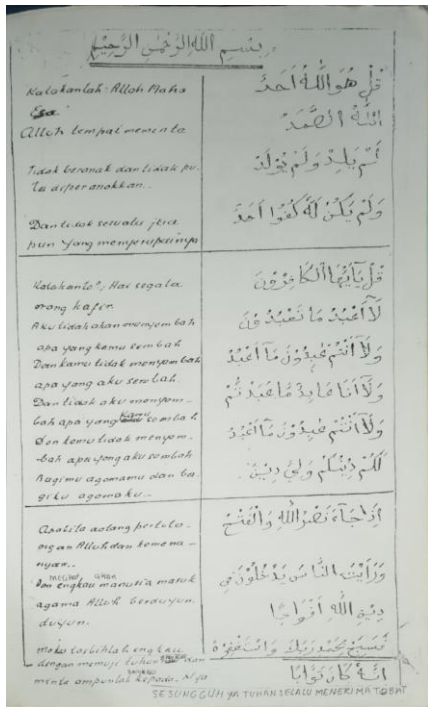 بسم الله الرحمن الرحيم
Katakanlah: Alloh Maha
Esa
Alloh tempat meminta
Tidak beranak dan tidak pu-
la diperanakkan..
Dan tidak sesuatu jua
pun yang menyerupainya
قل هو الله احد
الله الصمد
لم يلد ولم يولد
ولم يكن له كفوا احد
orang kafir.
Aku tidak akan menyembah
apa yang kamu sembah
Dan kamu tidak menyembah
apa yang aku sembah.
Dan tidak aku menyem-
bah apa yang kamu sembah
Dan kamu tidak menyem-
bah apa yang aku sembah
Bagimu agamamu dan ba-
giku agamaku..
قل يآيها الكافرون
لآ اعبد ما تعبدون
ولآ انتم عبدون مآ اعبد
ولآ انا عابد ما عبدتم
ولآ انتم عبدون مآ اعبد
لكم دينكم ولي دين.
Apabila datang pertolo-
ongan Alloh dan kemena-
ngan..
Dan melihat engkau akan manusia masuk
agama Alloh berduyun
duyun.
maka tasbihlah engkau
dengan memuji tuhan dan
minta ampunlah kepada-Nya
اذا جآء نصر الله والفتح
ورايت الناس يدخلون في
دين الله افواجا
فسبح بحمد ربك واستغفره
انه كان توابا
SESUNGGUHNYA TUHAN SELALU MENERIMA TOBAT